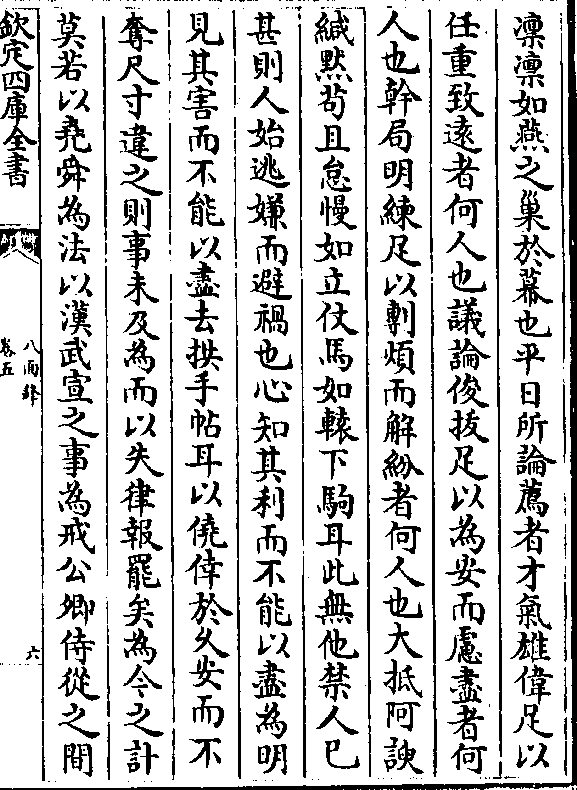 凛凛如燕之巢於幕也平日所論薦者才氣雄偉足以
任重致遠者何人也議論俊拔足以為安而慮盡者何
人也幹局明練足以剸煩而解紛者何人也大抵阿諛
緘默苟且怠慢如立仗馬如轅下駒耳此無他禁人已
甚則人始逃嫌而避禍也心知其利而不能以盡為明
見其害而不能以盡去拱手帖耳以僥倖於久安而不
奪尺寸違之則事未及為而以失律報罷矣為今之計
莫若以堯舜為法以漢武宣之事為戒公卿侍從之間
欽定四庫全書
八面鋒
卷五
六